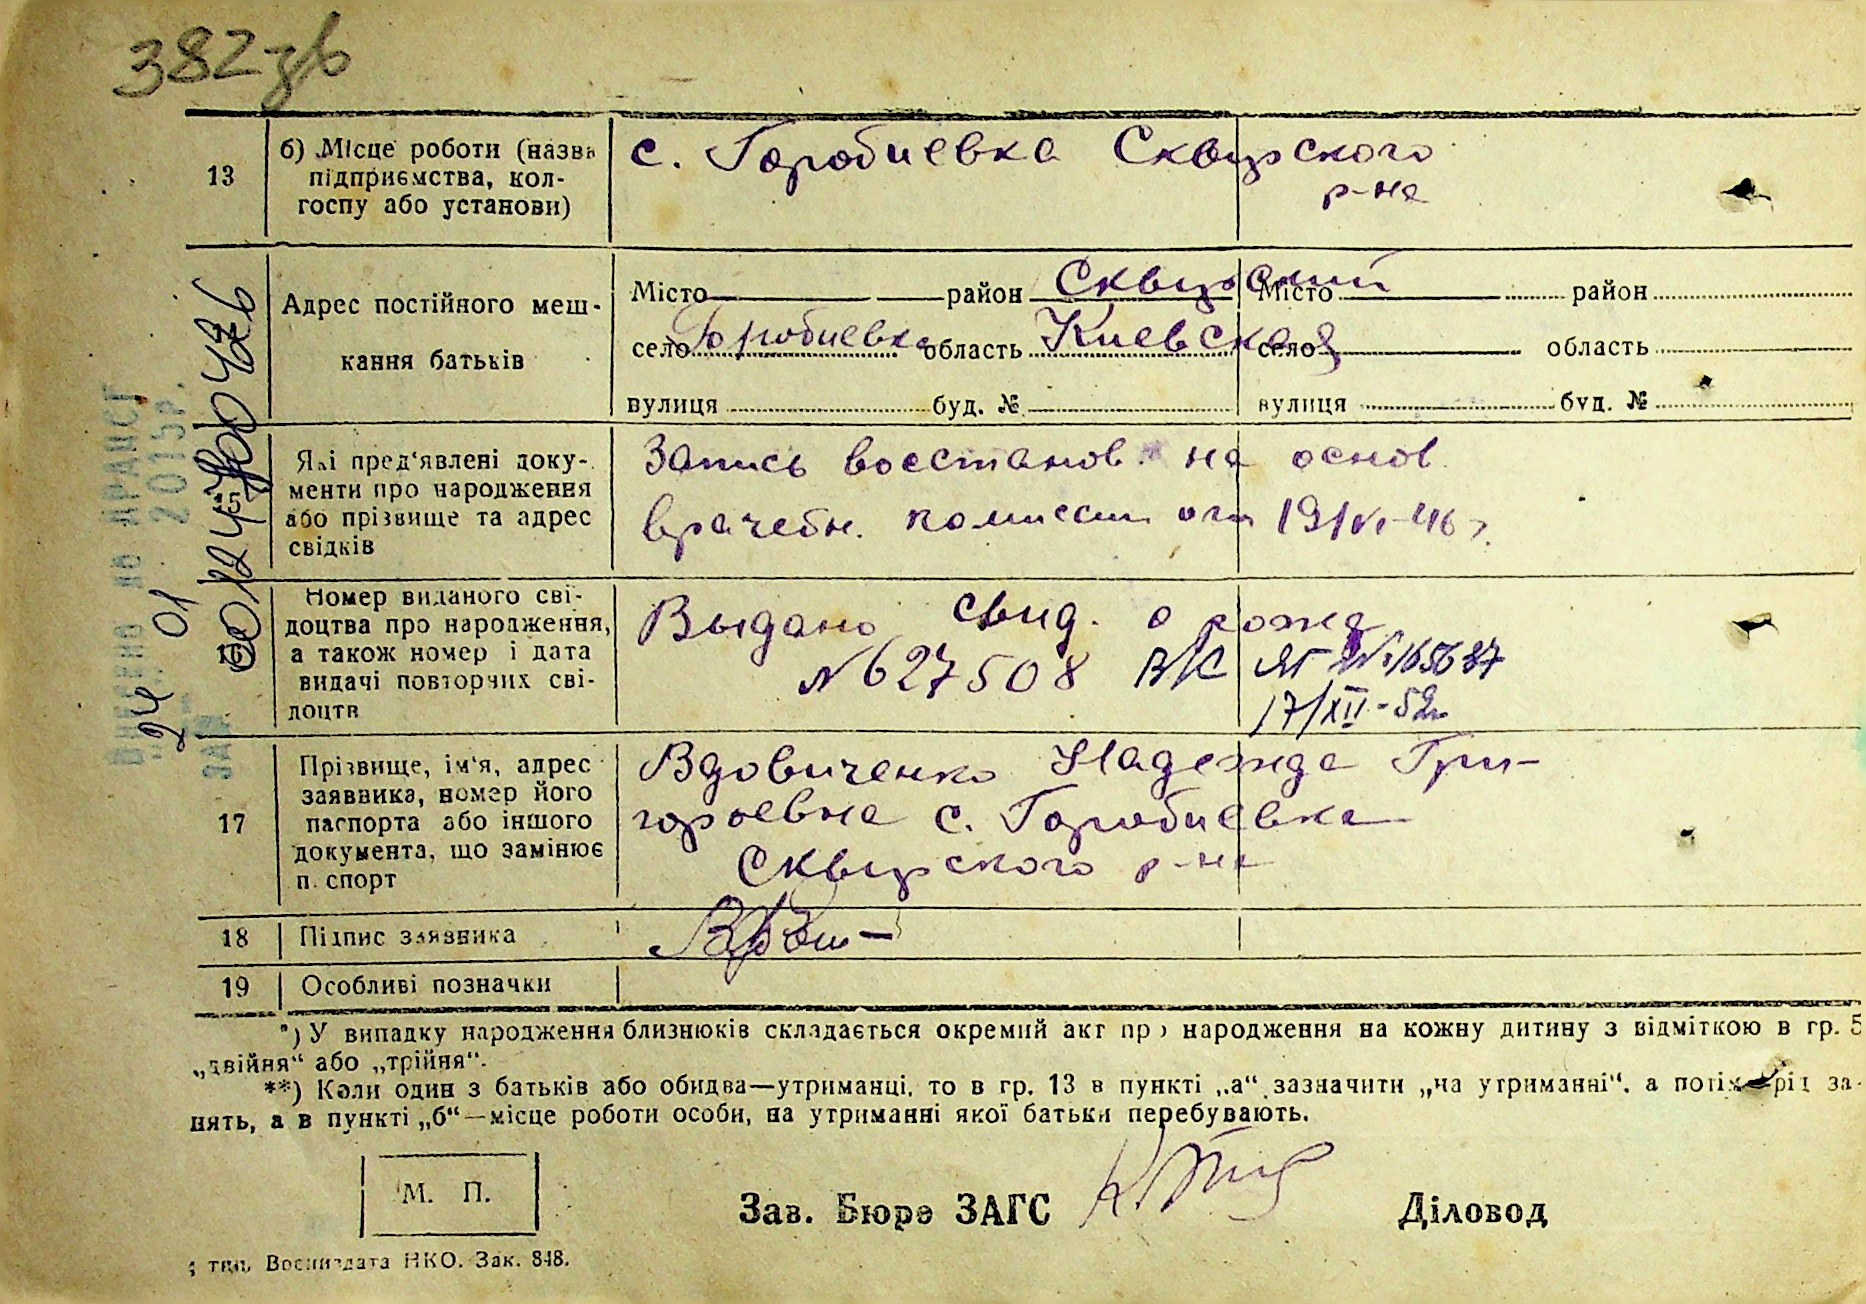 382 зв
13
б) Місце роботи (назва
підприємства, кол-
госпу або установи)
с. Горобиевка Сквирского
р-на
Адрес постійного меш-
кання батьків
Місто район Сквирский
село Горобиевка область Киевская
вулиця буд. №
Місто район
село область
вулиця буд. №
15
Які пред'явлені доку-
менти про народження
або прізвище та адрес
свідків
Запись восстанов. на основ.
врачебн. комиссии от 19/VI-46 г.
16
Номер виданого сві-
доцтва про народження,
а також номер і дата
видачі повторних сві-
доцтв
Выдано свид. о рожд
№ 627508 ЯГ № 165687
17/XII-52г
17
Прізвище, ім'я, адрес
заявника, номер його
паспорта або іншого
документа, що замінює
п спорт
Вдовиченко Надежда Гри-
горьевна с. Горобиевка
Сквирского р-на
18 Підпис заявника
19 Особливі позначки
*) У випадку народження близнюків складається окремий акт про народження на кожну дитину з відміткою в гр. 5
„двійня“ або „трійня“.
**) Коли один з батьків або обидва—утриманці, то в гр. 13 в пункті „а“ зазначити „на утриманні“, а потім рід за-
нять, а в пункті „б“—місце роботи особи, на утриманні якої батьки перебувають.
М. П.
Зав. Бюро ЗАГС Діловод
тип. Воениздата НКО. Зак. 848.
24 01 2015р.
ВНЕСЕНО ДО ДРАЦСГ
ЗА №